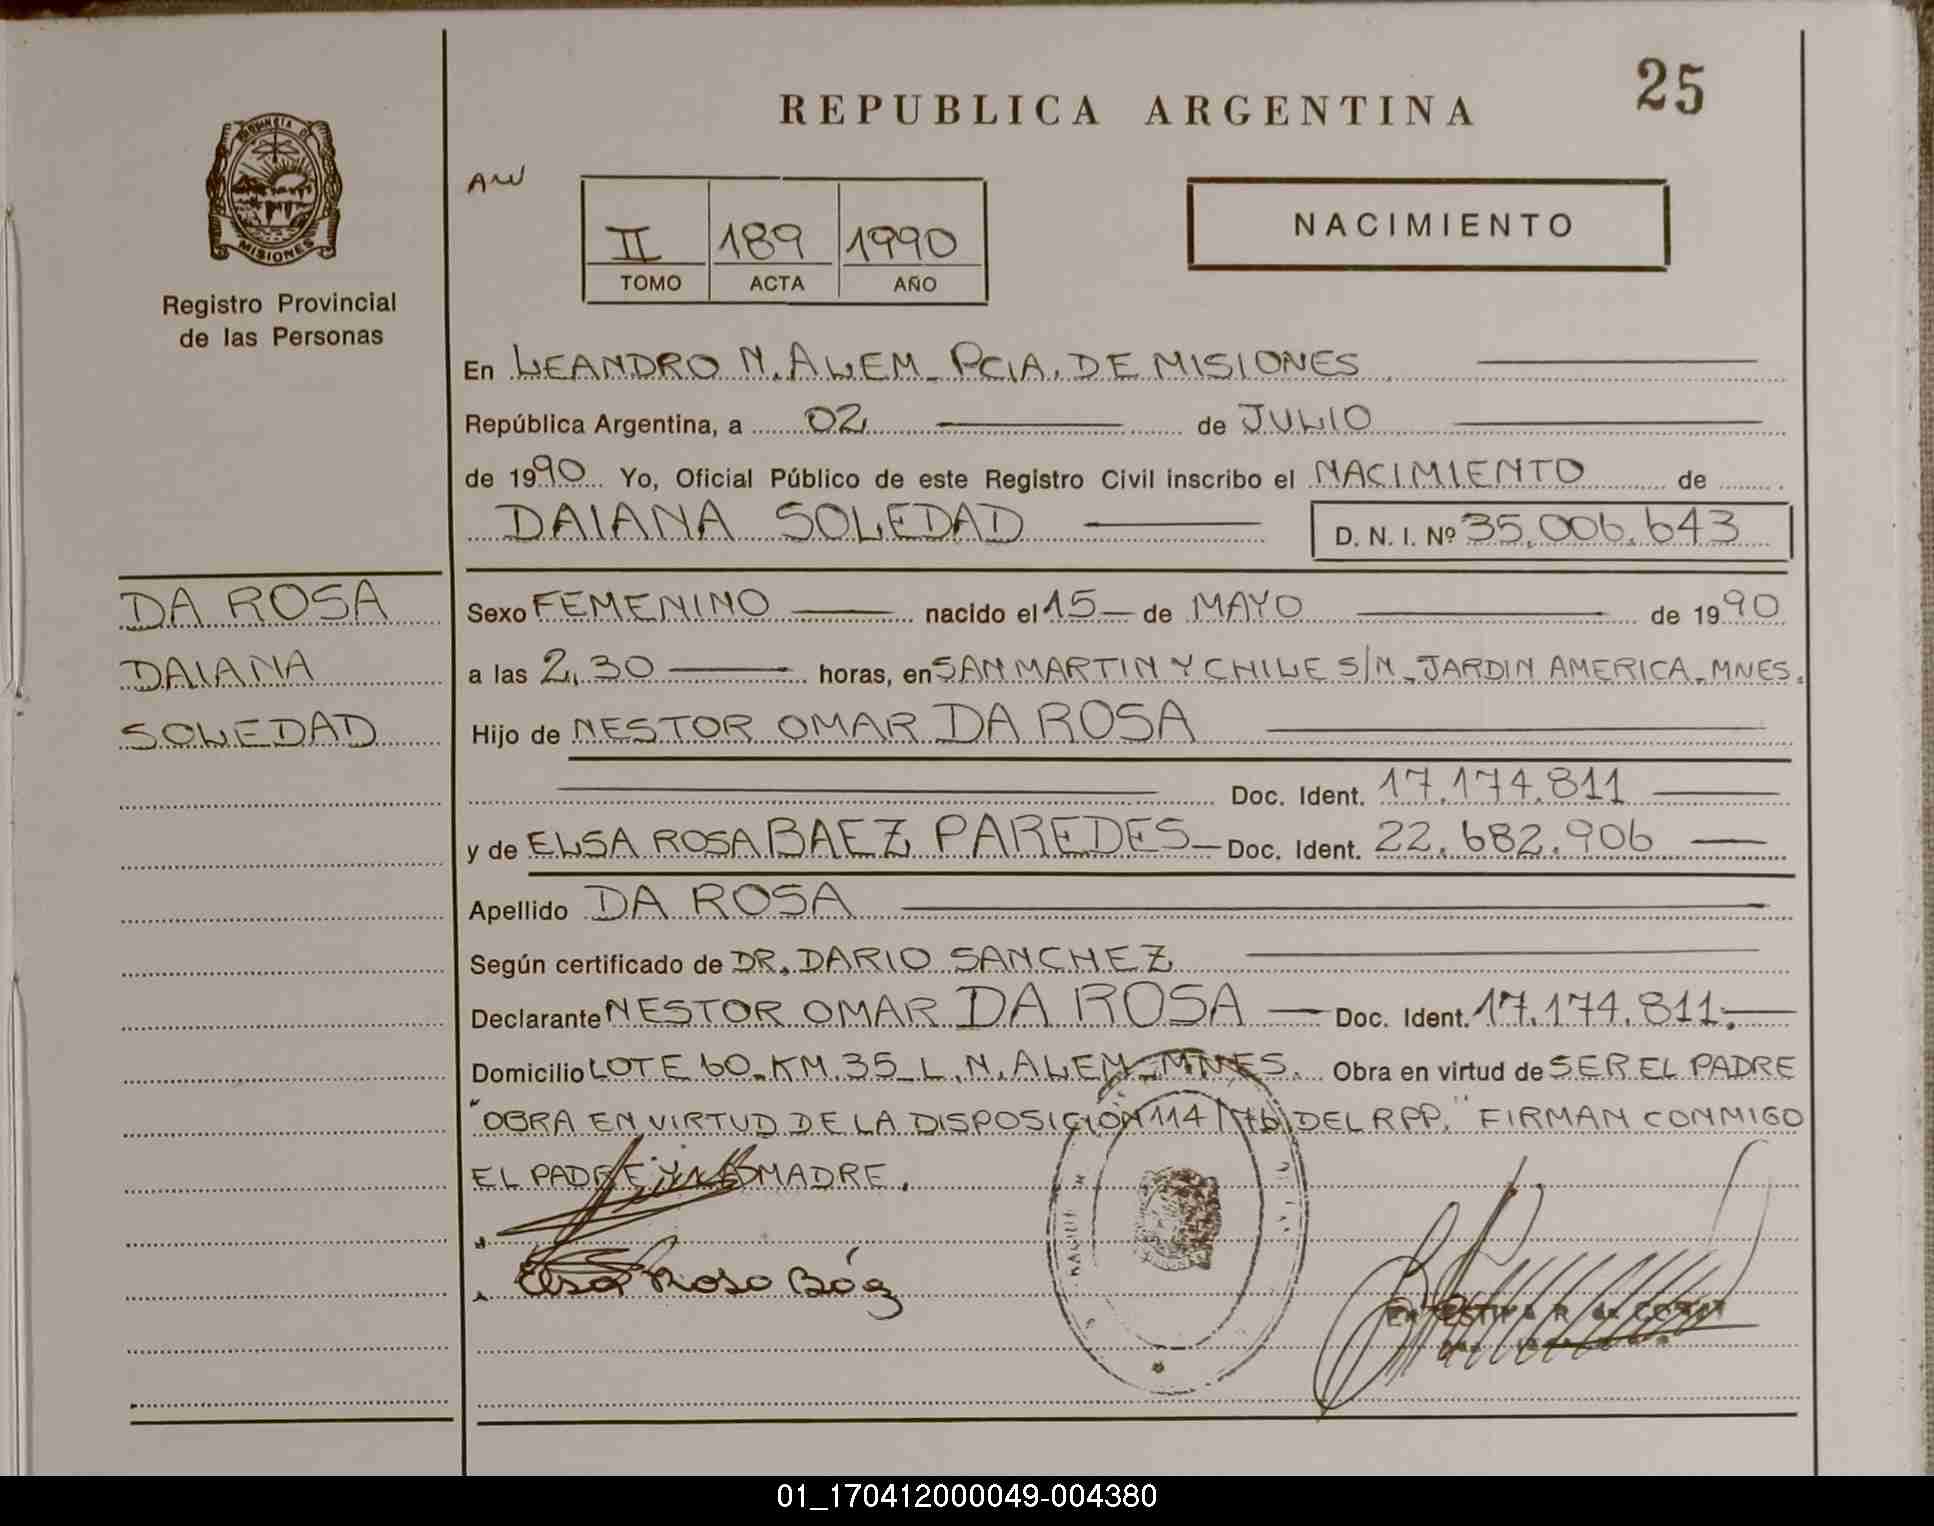 REPUBLICA ARGENTINA
25
PROVINCIA DE
MISIONES
Registro Provincial
de las Personas
AW
II 189 1990
TOMO ACTA AÑO
NACIMIENTO
En LEANDRO N. ALEM - PCIA. DE MISIONES
República Argentina, a 02 de JULIO
de 1990 Yo, Oficial Público de este Registro Civil inscribo el NACIMIENTO de
DAIANA SOLEDAD D. N. I. Nº 35.006.643
DA ROSA
DAIANA
SOLEDAD
Sexo FEMENINO nacido el 15 de MAYO de 1990
a las 2,30 horas, en SAN MARTIN Y CHILE S/N - JARDIN AMERICA - MNES.
Hijo de NESTOR OMAR DA ROSA
Doc. Ident. 17.174.811
y de ELSA ROSA BAEZ PAREDES - Doc. Ident. 22.682.906
Apellido DA ROSA
Según certificado de DR. DARIO SANCHEZ
Declarante NESTOR OMAR DA ROSA - Doc. Ident. 17.174.811.-
Domicilio LOTE 60 - KM. 35 - L. N. ALEM - MNES. Obra en virtud de SER EL PADRE
"OBRA EN VIRTUD DE LA DISPOSICION 114/76 DEL RPP." FIRMAN CONMIGO
EL PADRE Y LA MADRE.
Elsa Rosa Báez
01_170412000049-004380